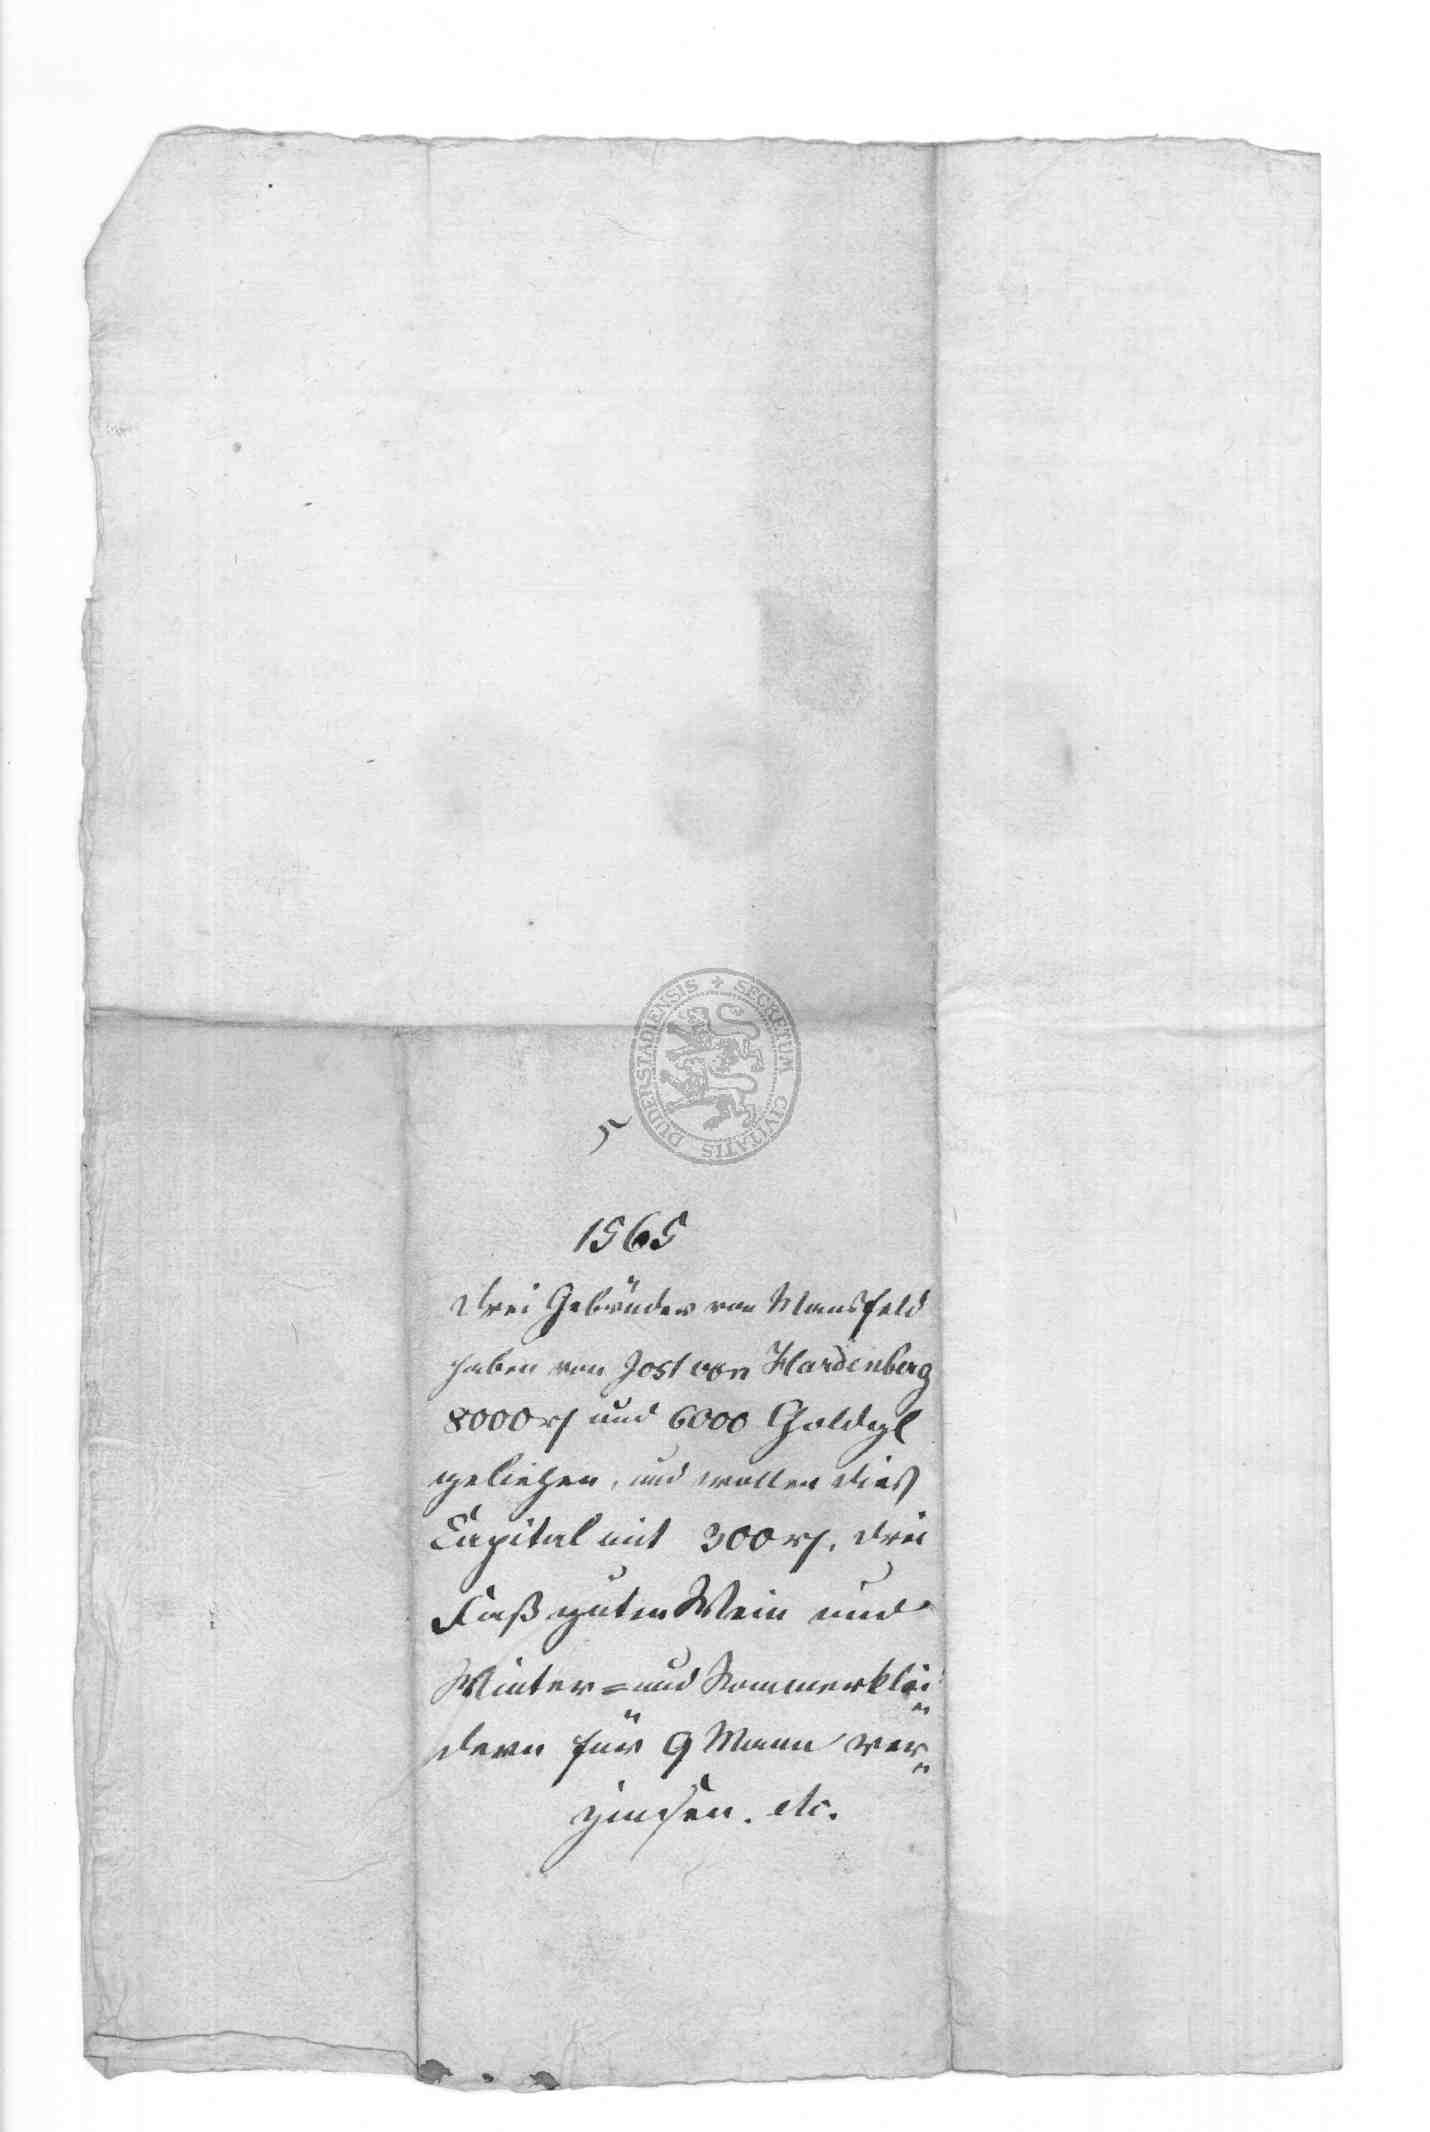 SECRETUM CIVITATIS DUDERSTADIENSIS
1565
Drei Gebrüder von Mansfeld
haben von Jost von Hardenberg
8000 rh und 6000 Goldgl
geliehen, und wollen dies
Capital mit 300 rh. drei
Faß guten Wein und
Winter= und Sommerklei
dern für 9 Mann ver
zinsen. etc.